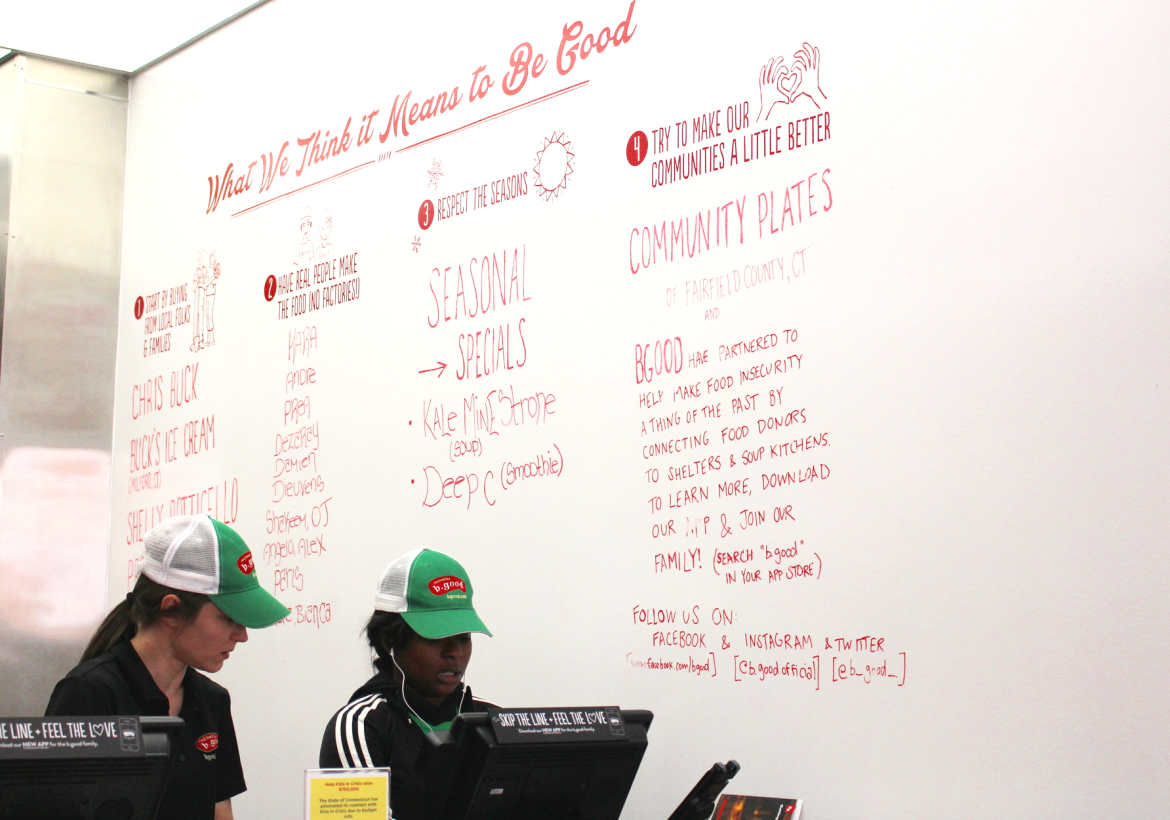 What We Think it Means to Be Good
1 START BY BUYING
FROM LOCAL FOLKS
& FAMILIES
CHRIS BUCK
BUCK'S ICE CREAM
(MILFORD, CT)
SHELLY BOTTICELLO
2 HAVE REAL PEOPLE MAKE
THE FOOD (NO FACTORIES!)
KARA
Andre
Prea
Dezaray
Damien
Dieuvens
Shakeem, OJ
Angelo, Alex
Paris
Bianca
3 RESPECT THE SEASONS
SEASONAL
→ SPECIALS
• KALE MINESTRONE
(SOUP)
• DEEP C (Smoothie)
4 TRY TO MAKE OUR
COMMUNITIES A LITTLE BETTER
COMMUNITY PLATES
OF FAIRFIELD COUNTY, CT
AND
BGOOD HAVE PARTNERED TO
HELP MAKE FOOD INSECURITY
A THING OF THE PAST BY
CONNECTING FOOD DONORS
TO SHELTERS & SOUP KITCHENS.
TO LEARN MORE, DOWNLOAD
OUR & JOIN OUR
FAMILY! (SEARCH "b.good"
IN YOUR APP STORE)
FOLLOW US ON:
FACEBOOK & INSTAGRAM & TWITTER
[www.facebook.com/bgood] [@b.good official] [@b_good_]
b.good
b.good
bgood.com
b.good
HE LINE + FEEL THE LOVE
Download our NEW APP for the b.good family.
SKIP THE LINE + FEEL THE LOVE
Download our NEW APP for the b.good family.
Help Kids in Crisis raise
$750,000
The State of Connecticut has
eliminated its contract with
Kids in Crisis due to budget
cuts.